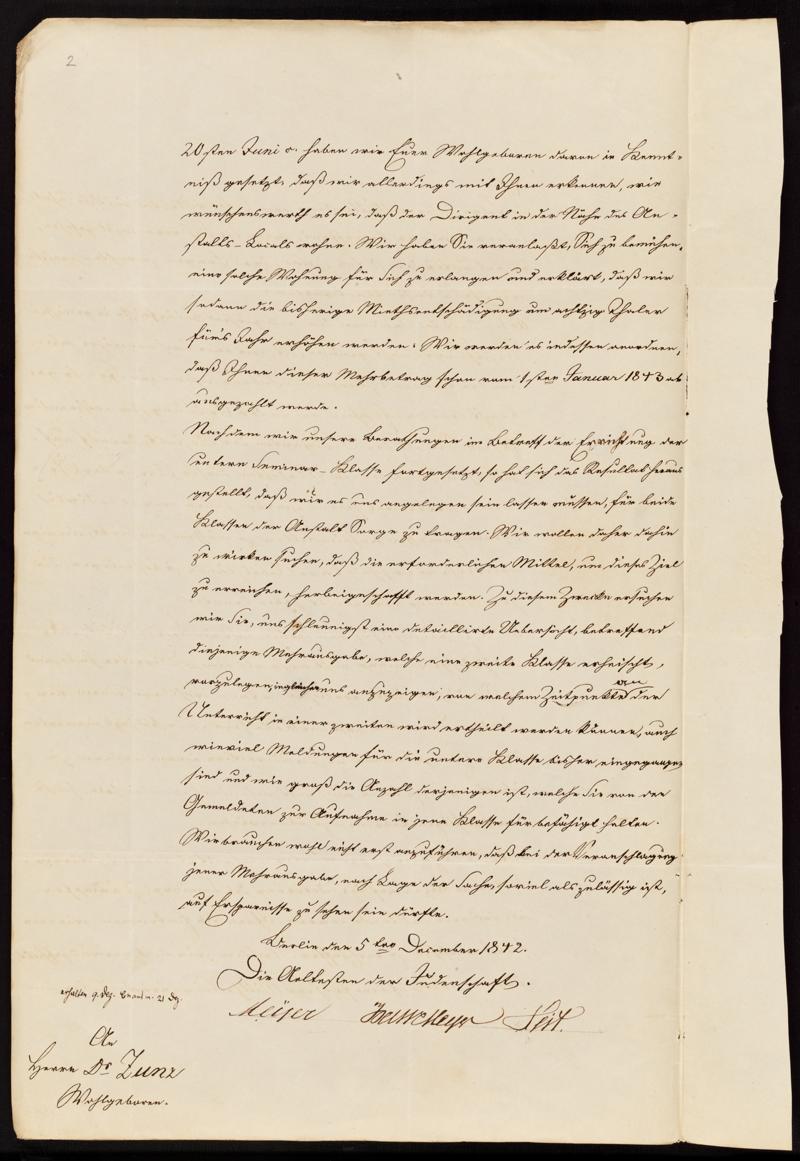 2
20sten Juni c. haben wir Euer Wohlgeboren davon in Kennt-
niß gesetzt, daß wir allerdings mit Ihnen erkennen, wie
wünschenswerth es sei, daß der Dirigent in der Nähe des An-
stalts-Locals wohne. Wir haben Sie veranlaßt, Sich zu bemühen,
eine solche Wohnung für Sich zu erlangen und erklärt, daß wir
sodann die bisherige Miethsentschädigung um achtzig Thaler
für's Jahr erhöhen werden. Wir werden es indessen anordnen,
daß Ihnen dieser Mehrbetrag schon vom 1sten Januar 1843 ab
ausgezahlt werde.
Nachdem wir unsere Berathungen in Betreff der Errichtung der
untern Seminar-Klasse fortgesetzt, so hat sich das Resultat heraus
gestellt, daß wir es uns angelegen sein lassen müssen, für beide
Klassen der Anstalt Sorge zu tragen. Wir wollen daher dahin
zu wirken suchen, daß die erforderlichen Mittel, um dieses Ziel
zu erreichen, herbeigeschafft werden. Zu diesem Zwecke ersuchen
wir Sie, uns schleunigst eine detaillirte Uebersicht, betreffend
diejenige Mehrausgabe, welche eine zweite Klasse erheischt,
vorzulegen, ingleichen uns anzuzeigen, von welchem Zeitpunkte an der
Unterricht in einer zweiten wird ertheilt werden können, auch
wieviel Meldungen für die untere Klasse bisher eingegangen
sind und wie groß die Anzahl derjenigen ist, welche Sie von den
Gemeldeten zur Aufnahme in jene Klasse für befähigt halten.
Wir brauchen wohl nicht erst anzuführen, daß bei der Veranschlagung
jener Mehrausgabe, nach Lage der Sache, soviel als zulässig ist,
auf Ersparnisse zu sehen sein dürfte.
Berlin den 5ten December 1842.
Die Aeltesten der Judenschaft.
Meyer Veit.
erhalten 9. Dez. 21 Dez.
An
Herrn Dr Zunz
Wohlgeboren.